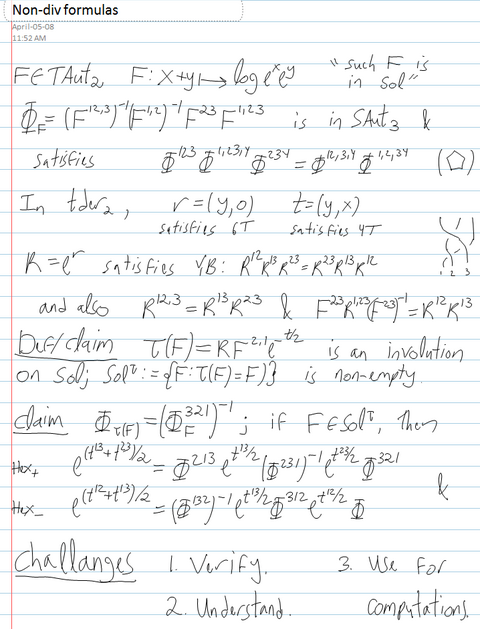 Non-div formulas
April-05-08
11:52 AM
F∈TAut₂ F: x+y ↦ log eˣeʸ "such F is in Sol"
Φ_F = (F^{12,3})^{-1}(F^{1,2})^{-1}F^{23}F^{1,23} is in SAut₃ &
satisfies Φ^{123}Φ^{1,23,4}Φ^{234} = Φ^{12,3,4}Φ^{1,2,34} (⬠)
In tder₂, r=(y,0) t=(y,x)
satisfies 6T satisfies 4T
R=e^r satisfies YB: R^{12}R^{13}R^{23}=R^{23}R^{13}R^{12}
1 2 3
and also R^{12,3}=R^{13}R^{23} & F^{23}R^{1,23}(F^{23})^{-1}=R^{12}R^{13}
Def/claim τ(F)=RF^{2,1}e^{-t/2} is an involution
on Sol; Sol^τ:={F:τ(F)=F)} is non-empty.
claim Φ_{τ(F)}=(Φ_F^{321})^{-1}; if F∈Sol^τ, then
Hex₊ e^{(t^{13}+t^{23})/2}=Φ^{213}e^{t^{13}/2}(Φ^{231})^{-1}e^{t^{23}/2}Φ^{321}
&
Hex₋ e^{(t^{12}+t^{13})/2}=(Φ^{132})^{-1}e^{t^{13}/2}Φ^{312}e^{t^{12}/2}Φ
Challanges 1. Verify. 3. Use for
2. Understand. computations.